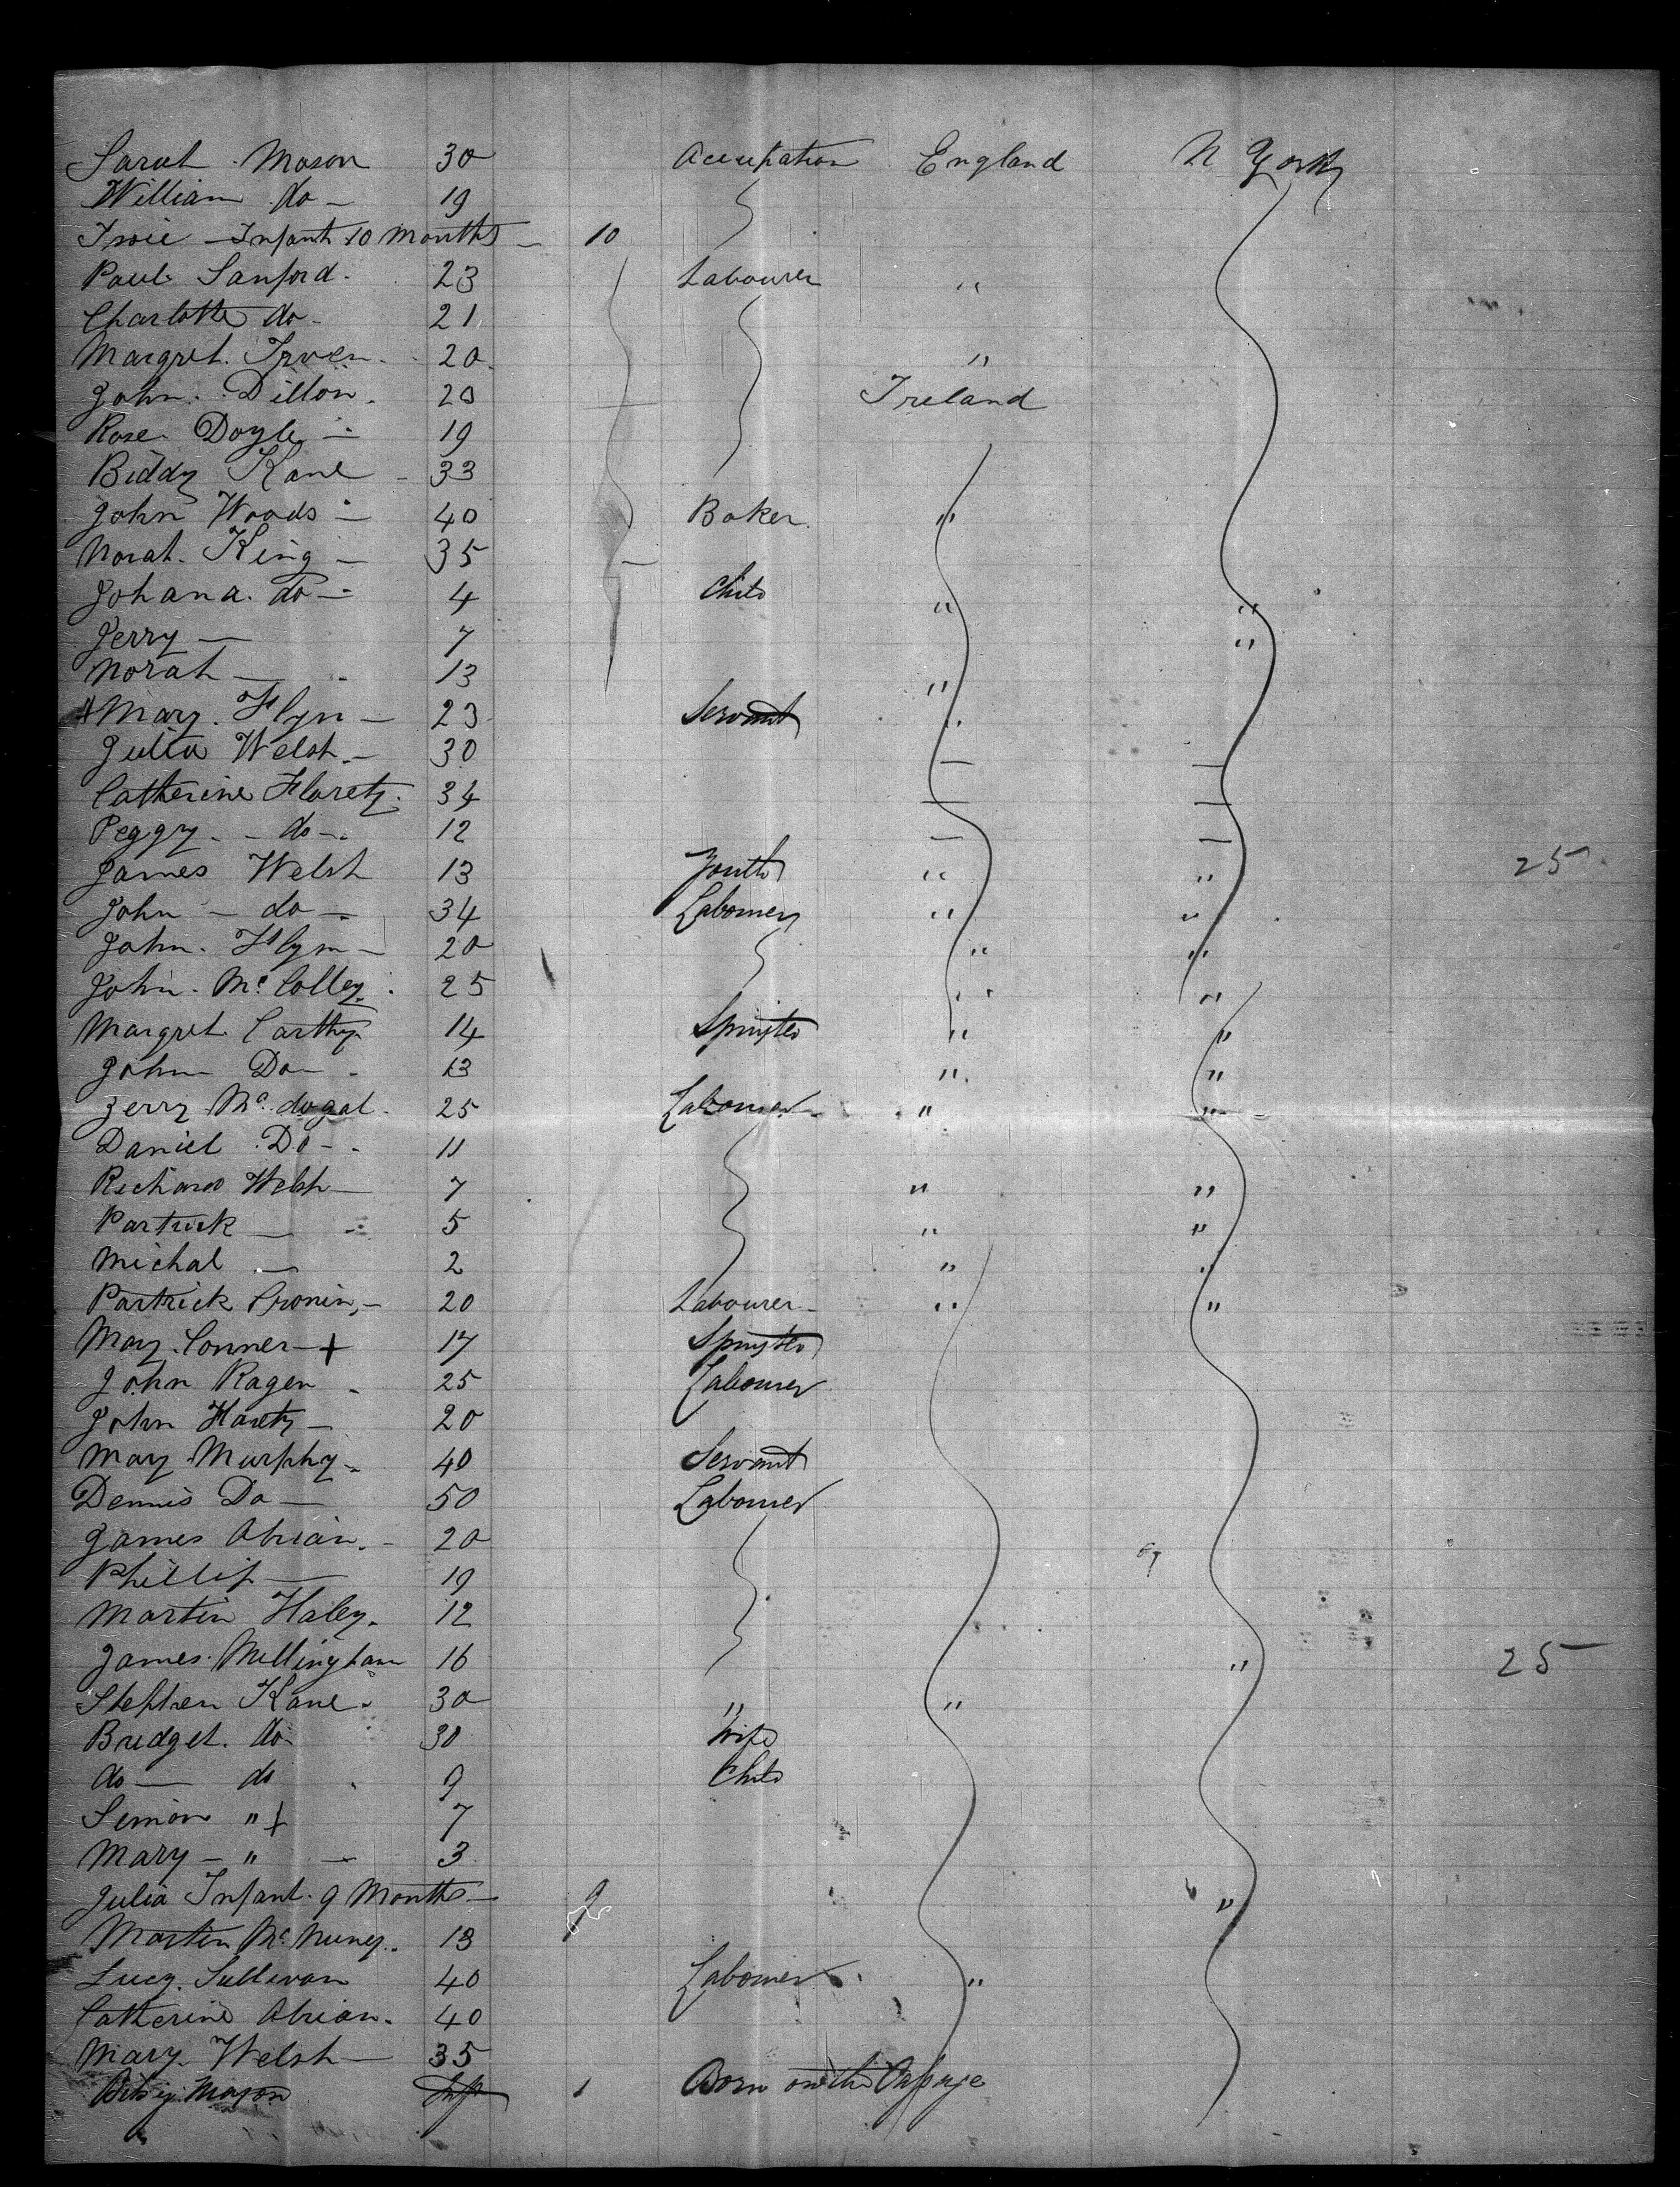 Sarah Mason 30 Occupation England N York
William do - 19
Infant 10 Months - 10
Paul Sanford. 23 Labourer "
Charlotte do - 21
Margret. Irven. 20 "
John. Dillon. 20 Ireland
Rose. Doyle - 19
Biddy Kane - 33
John Woods - 40 Baker. "
Norah. King - 35
Johana. do - 4 Child " "
Jerry - 7 "
Norah - 13 "
Mary. Flyn - 23 Servant "
Julia Welsh. - 30 - -
Catherine 34 - -
Peggy. - do - 12 - -
James Welsh 13 Youth " " 25
John - do - 34 Labourer " "
John. Flyn - 20 " "
John. Mc Colley. 25 " "
Margret Carthy 14 Spinster " "
John Do - 13 " "
Jerry Mc. dogal. 25 Labourer " "
Daniel Do - 11
Richard Welsh - 7 " "
Partrick - 5 " "
Michal - 2 " "
Partrick Cronin, - 20 Labourer - " "
Mary. Conner - + 17 Spinster
John Ragen 25 Labourer
John 20
Mary Murphy - 40 Servant
Dennis Do - 50 Labourer
James Obrian. - 20
Phillip - 19
Martin Haley. 12
James. Millingham 16 " 25
Stephen Kane. 30 " "
Bridget. do 30 Wife
do - do 9 Child
Semon " 7
Mary - " - 3
Julia Infant. 9 Months - 9 "
Martin Mc. Nuney. 13
Lucy. Sullivan 40 Labourer "
Catherine Obrian. 40
Mary. Welsh - 35
Betsy Mason Inft 1 Born on the Passage